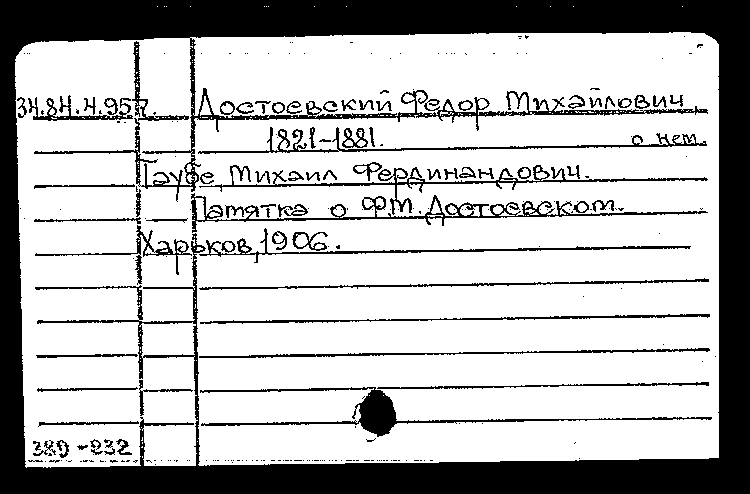 34.84.4.957. Достоевский, Федор Михайлович,
1821-1881. о нем.
Таубе, Михаил Фердинандович.
Памятка о Ф.М. Достоевском.
Харьков, 1906.
389-232